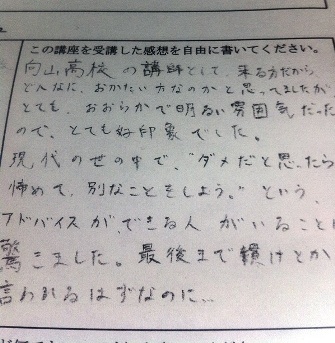 この講座を受講した感想を自由に書いてください。
向山高校の講師として、来る方だから
どんなに、おかたい方なのかと思ってましたが
とても、おおらかで明るい雰囲気だった
ので、とても好印象でした。
現代の世の中で、"ダメだと思ったら
諦めて、別なことをしよう。"という
アドバイスが、できる人がいることに
驚きました。最後まで続けとか
言われるはずなのに…